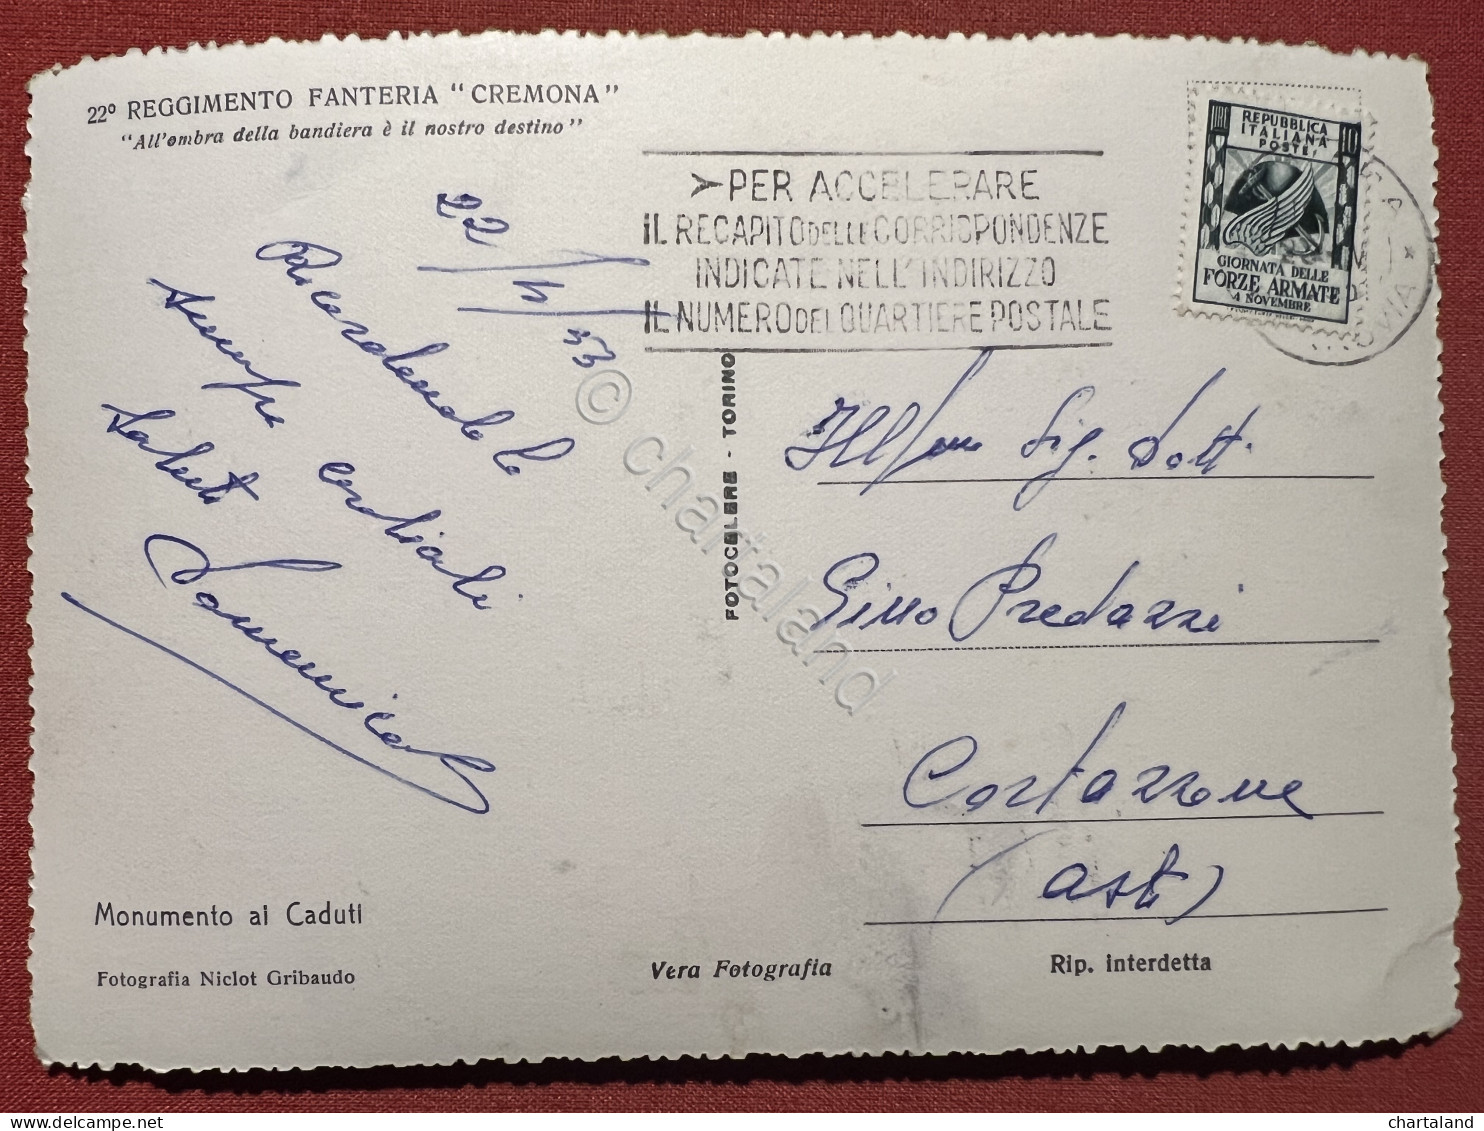 22° REGGIMENTO FANTERIA "CREMONA"
"All'ombra della bandiera è il nostro destino"
PER ACCELERARE
IL RECAPITO DELLE CORRISPONDENZE
INDICATE NELL'INDIRIZZO
IL NUMERO DEL QUARTIERE POSTALE
REPUBBLICA
ITALIANA
POSTE
GIORNATA DELLE
FORZE ARMATE
4 NOVEMBRE
22/ /53
Ricordandola
sempre cordiali
saluti
Domenico
FOTOCELERE - TORINO
Sig. Dott.
Gino Predazzi
Cortazzone
(Asti)
Monumento ai Caduti
Fotografia Niclot Gribaudo
Vera Fotografia
Rip. interdetta
© chartaland
chartaland
delcampe.net